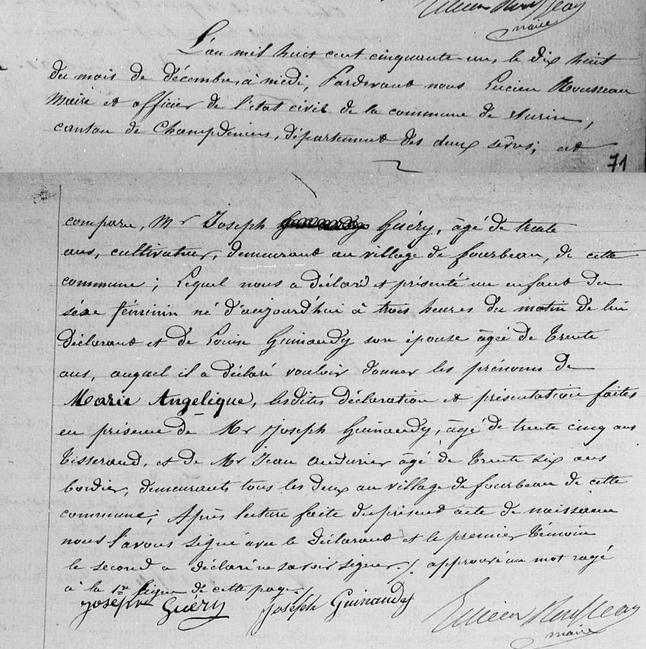 Lucien Rousseau
maire
L'an mil huit cent cinquante un, le dix huit
du mois de décembre, à midi, Pardevant nous Lucien Rousseau
Maire et officier de l'état civil de la commune de Surin,
canton de Champdeniers, département des deux sèvres; est
71
comparu, Mr Joseph Guéry, âgé de trente
ans, cultivateur, demeurant au village de fourbeau, de cette
commune; Lequel nous a déclaré et présenté un enfant du
séxe féminin né d'aujourd'hui à trois heures du matin de lui
déclarant et de Louise Guinaudy son épouse âgé de Trente
ans, auquel il a déclaré vouloir donner les prénoms de
Marie Angélique, lesdites déclaration et présentation faites
en présence de Mr Joseph Guinaudy, âgé de trente cinq ans
Tisserand, et de Mr Jean audurier âgé de Trente six ans
bordier, demeurants tous les deux au village de fourbeau de cette
commune; Après lecture faite du présent acte de naissance
nous l'avons signé avec le déclarant et le premier témoin
le second a déclaré ne savoir signer ./. approuvé un mot rayé
à la 1re ligne de cette page.
Joseph Guéry Joseph Guinaudy Lucien Rousseau
maire